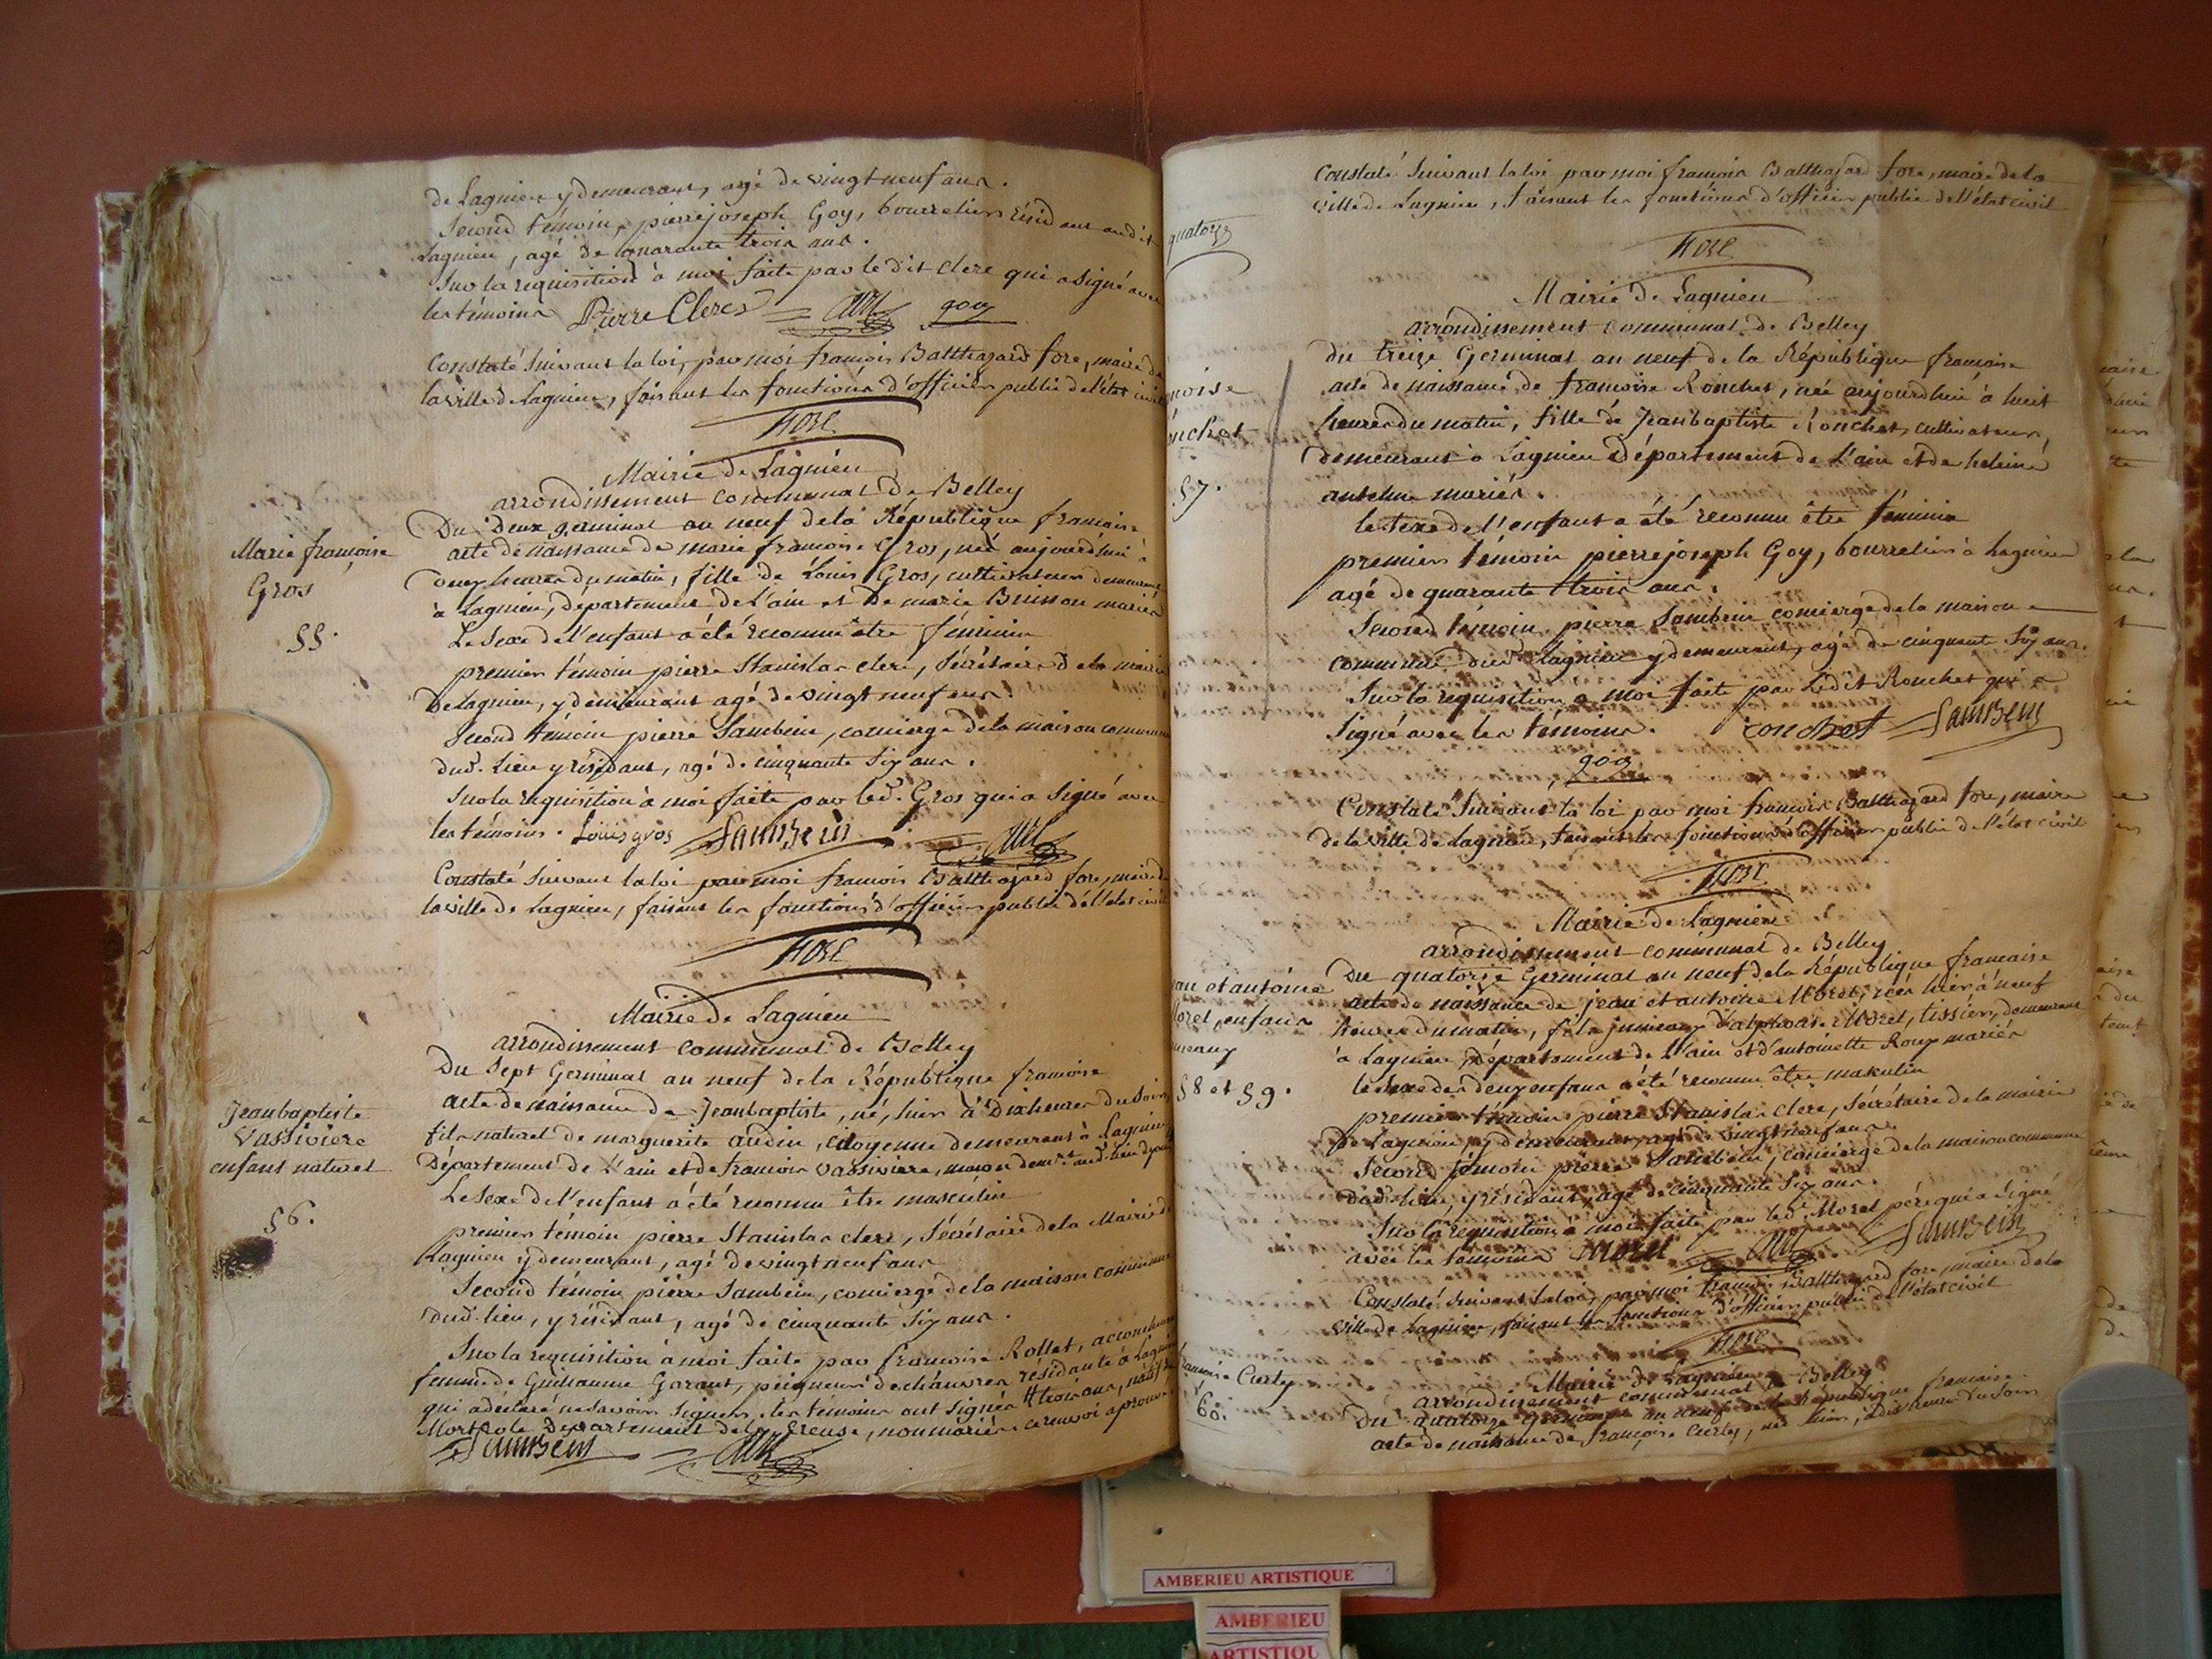 de Lagnieu y demeurant, agé de vingt neuf ans.
Second témoin, pierre joseph Goy, bourrelier résidant audit
Lagnieu, agé de quarante trois ans.
Sur la requisition à moi faite par le dit Clerc qui a signé avec
les témoins Pierre Clerc goy
Constaté Suivant la loi, par moi françois Balthazard fore, maire de
la ville de Lagnieu, faisant les fonctions d'officier public de l'état civil
fore
Mairie de Lagnieu
arrondissement communal de Belley
Marie françoise
Gros
55.
Du Deux germinal an neuf de la République française
acte de naissance de marie françoise Gros, née aujourd'hui à
onze heures du matin, fille de Louis Gros, cultivateur demeurant
à Lagnieu, département de L'ain et de marie Buisson mariés
Le Sexe de l'enfant a été reconnu être féminin
premier témoin pierre Stanislas clerc, Sécrétaire de la mairie
de Lagnieu, y demeurant agé de vingt neuf ans.
Second témoin pierre Sambein, concierge de la maison commune
dud. Lieu y résidant, agé de cinquante Six ans.
Sur la requisition à moi faite par led. Gros qui a Signé avec
les témoins. Louis gros Sambein
Constaté Suivant la loi par moi françois Balthazard fore, maire de
la ville de Lagnieu, faisant les fonctions d'officier public de l'état civil
fore
Mairie de Lagnieu
arrondissement communal de Belley
Jean baptiste
Vassiviere
enfant naturel
56.
Du Sept Germinal an neuf de la République françoise
acte de naissance de Jean baptiste, né, hier à Dix heures du Soir,
fils naturel de marguerite audin, citoyenne demeurant à Lagnieu
Département de L'ain et de françois Vassiviere, maçon demt. aud. lieu
Le Sexe de l'enfant a été reconnu être masculin
premier témoin pierre Stanislas clerc, Sécrétaire de la Mairie de
Lagnieu y demeurant, agé de vingt neuf ans
Second témoin pierre Sambein, concierge de la maison commune
dud. lieu, y résidant, agé de cinquante Six ans.
Sur la requisition à moi faite par françoise Rollet, accoucheuse
femme de Guillaume Garant, peigneur de chanvres résidante à Lagnieu
qui a déclaré ne Savoir Signer, les témoins ont Signés
Département de la Creuse, non mariés ce renvoi aprouvé
Sambein
quatorze
Constaté Suivant la loi par moi françois Balthazard fore, maire de la
ville de Lagnieu, faisant les fonctions d'officier public de l'état civil
fore
Mairie de Lagnieu
arrondissement communal de Belley
noise
onchet
57.
du treize Germinal an neuf de la République française
acte de naissance de françoise Ronchet, née aujourdhui à huit
heures du matin, fille de Jean baptiste Ronchet, cultivateur,
demeurant à Lagnieu Département de L'ain et de heleine
antelme mariés.
le Sexe de l'enfant a été reconnu être féminin
premier témoin pierre joseph Goy, bourrelier à Lagnieu
agé de quarante trois ans.
Second témoin pierre Sambein concierge de la maison
commune dud. Lagnieu y demeurant, agé de cinquante Six ans.
Sur la requisition à moi faite par Ledit Ronchet qui a
Signé avec les témoins. ronchet Sambein
goy
Constaté Suivant la loi par moi françois Balthazard fore, maire
de la ville de Lagnieu, faisant les fonctions d'officier public de l'état civil
fore
Mairie de Lagnieu
arrondissement communal de Belley
an et antoine
orel, enfans
meaux
58 et 59.
Du quatorze Germinal an neuf de la République francaise
acte de naissance de jean et antoine Morel, nés hier à neuf
heures du matin, fils jumeaux d'alphonse Morel, tissier, demeurant
à Lagnieu, Département de L'ain et d'antoinette Roux mariés
le Sexe des deux enfans a été reconnu être masculin
premier témoin pierre Stanislas clerc, Sécrétaire de la mairie
de Lagnieu, y demeurant, agé de vingt neuf ans.
Second témoin pierre Sambein, concierge de la maison commune
dud. lieu, y résidant, agé de cinquante Six ans.
Sur la requisition à moi faite par led. Morel père qui a Signé
avec les témoins Morel Sambein
Constaté Suivant la loi, par moi françois Balthazard fore, maire de la
ville de Lagnieu, faisant les fonctions d'officier public de l'état civil
fore
Mairie de Lagnieu
arrondissement communal de Belley
françoise Curty
60.
Du quatorze Germinal an neuf de la République francaise
acte de naissance de françoise Curty, née hier, à Dix heures du Soir
AMBERIEU ARTISTIQUE
AMBERIEU
ARTISTIQU